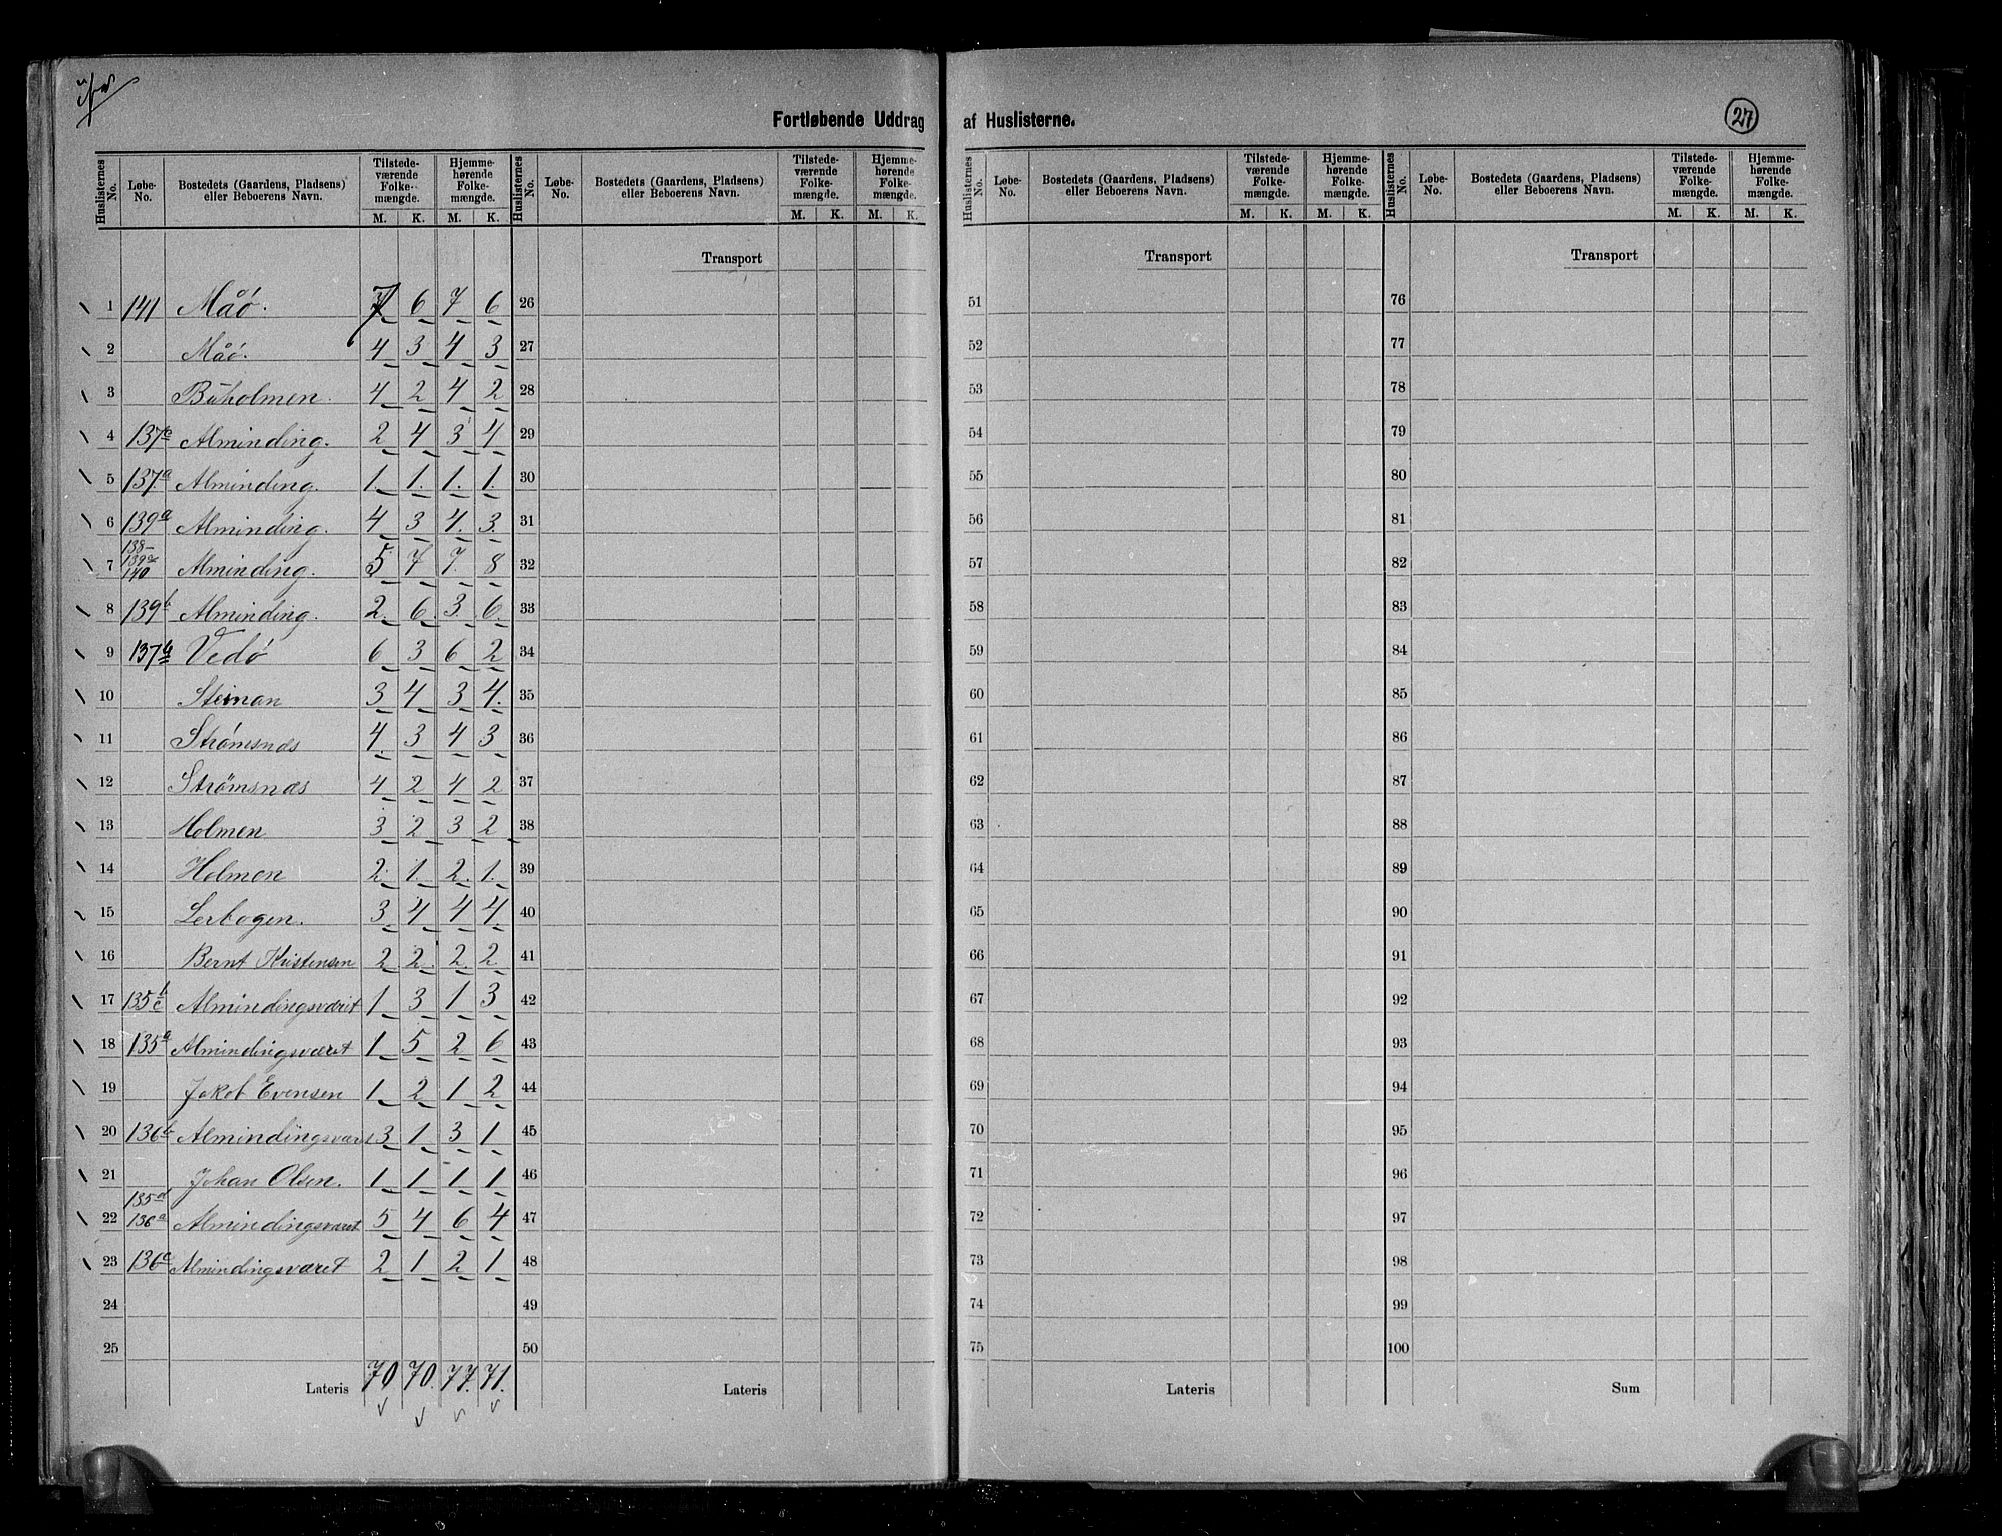 Fortløbende Uddrag af Huslisterne.
27
Huslisternes No. | Løbe-No. | Bostedets (Gaardens, Pladsens) eller Beboerens Navn. | Tilstede-værende Folke-mængde. M. K. | Hjemme-hørende Folke-mængde. M. K.
Huslisternes No. | Løbe-No. | Bostedets (Gaardens, Pladsens) eller Beboerens Navn. | Tilstede-værende Folke-mængde. M. K. | Hjemme-hørende Folke-mængde. M. K.
Huslisternes No. | Løbe-No. | Bostedets (Gaardens, Pladsens) eller Beboerens Navn. | Tilstede-værende Folke-mængde. M. K. | Hjemme-hørende Folke-mængde. M. K.
Huslisternes No. | Løbe-No. | Bostedets (Gaardens, Pladsens) eller Beboerens Navn. | Tilstede-værende Folke-mængde. M. K. | Hjemme-hørende Folke-mængde. M. K.
Transport Transport Transport
1 141 Måø. 7 6 7 6 26 51 76
2 Måø. 4 3 4 3 27 52 77
3 Buholmen. 4 2 4 2 28 53 78
4 137c Alminding. 2 4 3 4 29 54 79
5 137a Alminding. 1. 1. 1. 1. 30 55 80
6 139a Alminding. 4 3 4. 3. 31 56 81
138-
139c
7 140 Alminding. 5 7 7. 8 32 57 82
8 139b Alminding. 2. 6. 3. 6. 33 58 83
9 137b Vedø 6 3 6 2 34 59 84
10 Steinan 3 4 3 4. 35 60 85
11 Strømsnæs 4. 3 4 3 36 61 86
12 Strømsnæs 4 2 4 2 37 62 87
13 Holmen 3 2 3 2 38 63 88
14 Holmen 2. 1. 2. 1. 39 64 89
15 Lerbogen. 3 4 4 4. 40 65 90
16 Bernt Kristensen 2 2. 2. 2 41 66 91
17 135b c Almindingsværet 1 3 1 3 42 67 92
18 135a Almindingsværet 1 5 2 6 43 68 93
19 Jakob Evensen 1 2 1 2 44 69 94
20 136b Almindingsværet 3 1 3 1 45 70 95
21 Johan Olsen. 1 1 1 1 46 71 96
135d
22 136a Almindingsværet 5 4 6 4 47 72 97
23 136c Almindingsværet 2 1 2 1 48 73 98
24 49 74 99
25 50 75 100
Lateris 70 70. 77. 71. Lateris Lateris Sum